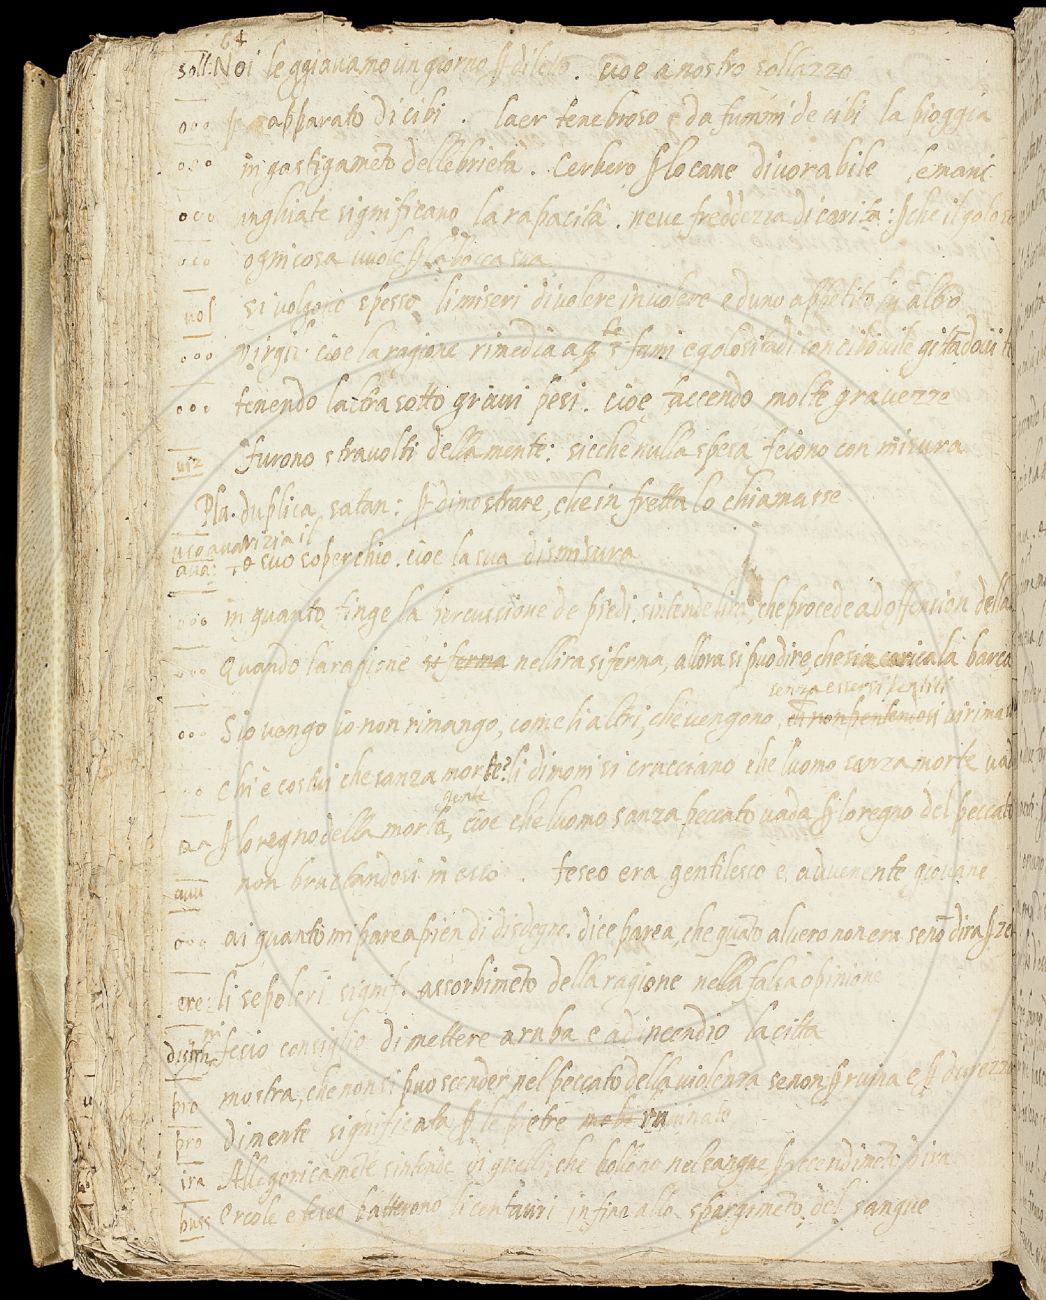 64
soll: Noi leggiavamo un giorno ꝑ diletto. cioe a nostro sollazzo
ooo ꝑ apparato di cibi. laer tenebroso e da fummi de cibi la pioggia
ooo in gastigamēto dellebrietà. Cerbero ꝑ lo cane divorabile, e mani
ooo unghiate significano la rapacità. neve freddezza di carità: ꝑche il goloso
ooo ogni cosa vuole ꝑ la bocca sua
vol si volgono spesso li miseri di volere in volere e duno appetito in altro
ooo virgil. cioe la ragione rimedia a fami e golosità di con cibo vile
ooo tenendo laltra sotto gravi pesi. cioe faccendo molte gravezze
viz furono stravolti della mente: sieche nulla spesa feciono con misura
Plu. duplica satan: ꝑ dimostrare, che in fretta lo chiamasse
avarizia il
ava: suo soperchio. cioe la sua dismisura
ooo in quanto finge la percussione de piedi. sintende lira, che procede ad offension della
ooo Quando la ragione si ferma nellira si ferma, allora si puo dire, che sia carica la barca
senza essersi pentiti
ooo Sio vengo io non rimango, come li altri, che vengono, vi rima
oo Chi è costui che sanza morte? li dimoni si crucciano che luomo sanza morte vad
gente
aa ꝑ lo regno della morta, cioe che luomo sanza peccato vada ꝑ lo regno del peccato
avv non bruttandosi in esso. Teseo era gentilesco e avvenente giovane
ooo ai quanto mi parea pien di disdegno. dice parea, che quāto al vero non era
ere: li sepolcri signif. assorbimēto della ragione nella falsa opinione
fecio consiglio di mettere a ruba e ad incendio la citta
pro mostra, che non si puo scender nel peccato della violenza se non ꝑ ruina e ꝑ durezza
pro di mente significata ꝑ le pietre ruinate
ira Allegoricamēte sintende di quelli che bollono nel sangue ꝑ accendimēto dira
Ercole e teseo batterono li centauri infino allo spargimēto del sangue